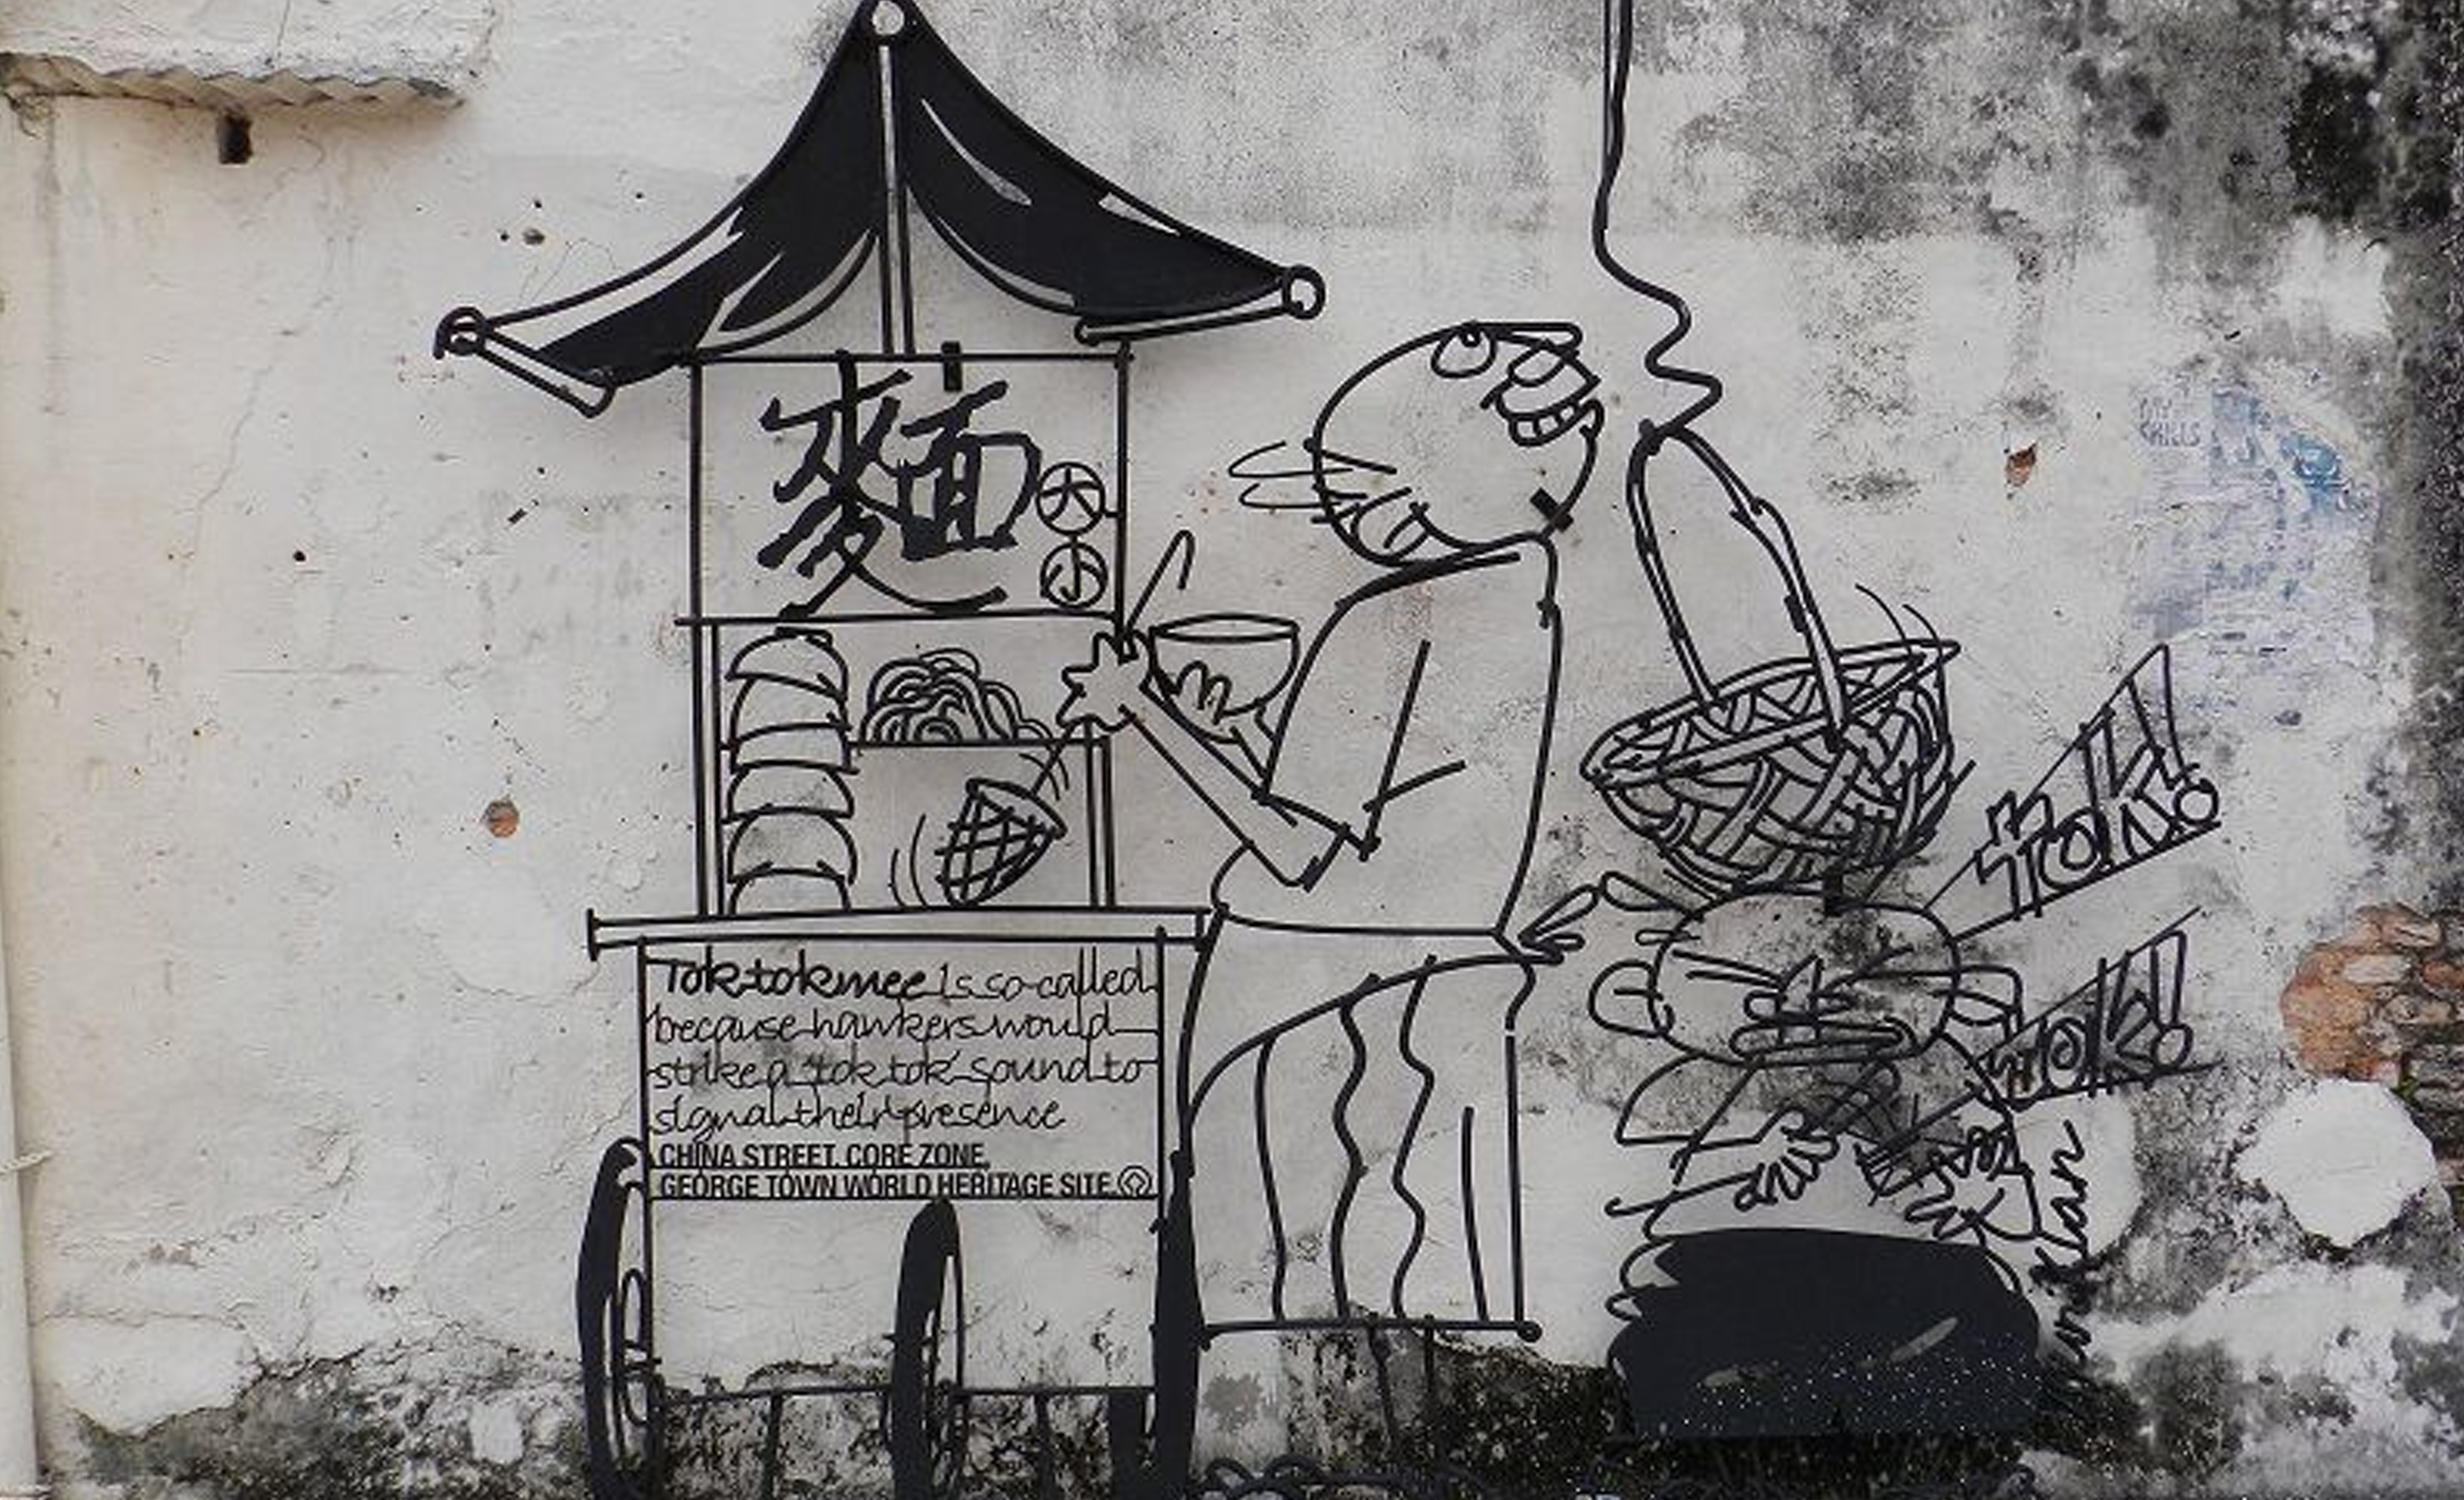 麵
大
小
Tok tok mee is so called
because hawkers would
strike a 'tok tok' sound to
signal their presence
CHINA STREET, CORE ZONE,
GEORGE TOWN WORLD HERITAGE SITE
TOK!
TOK!